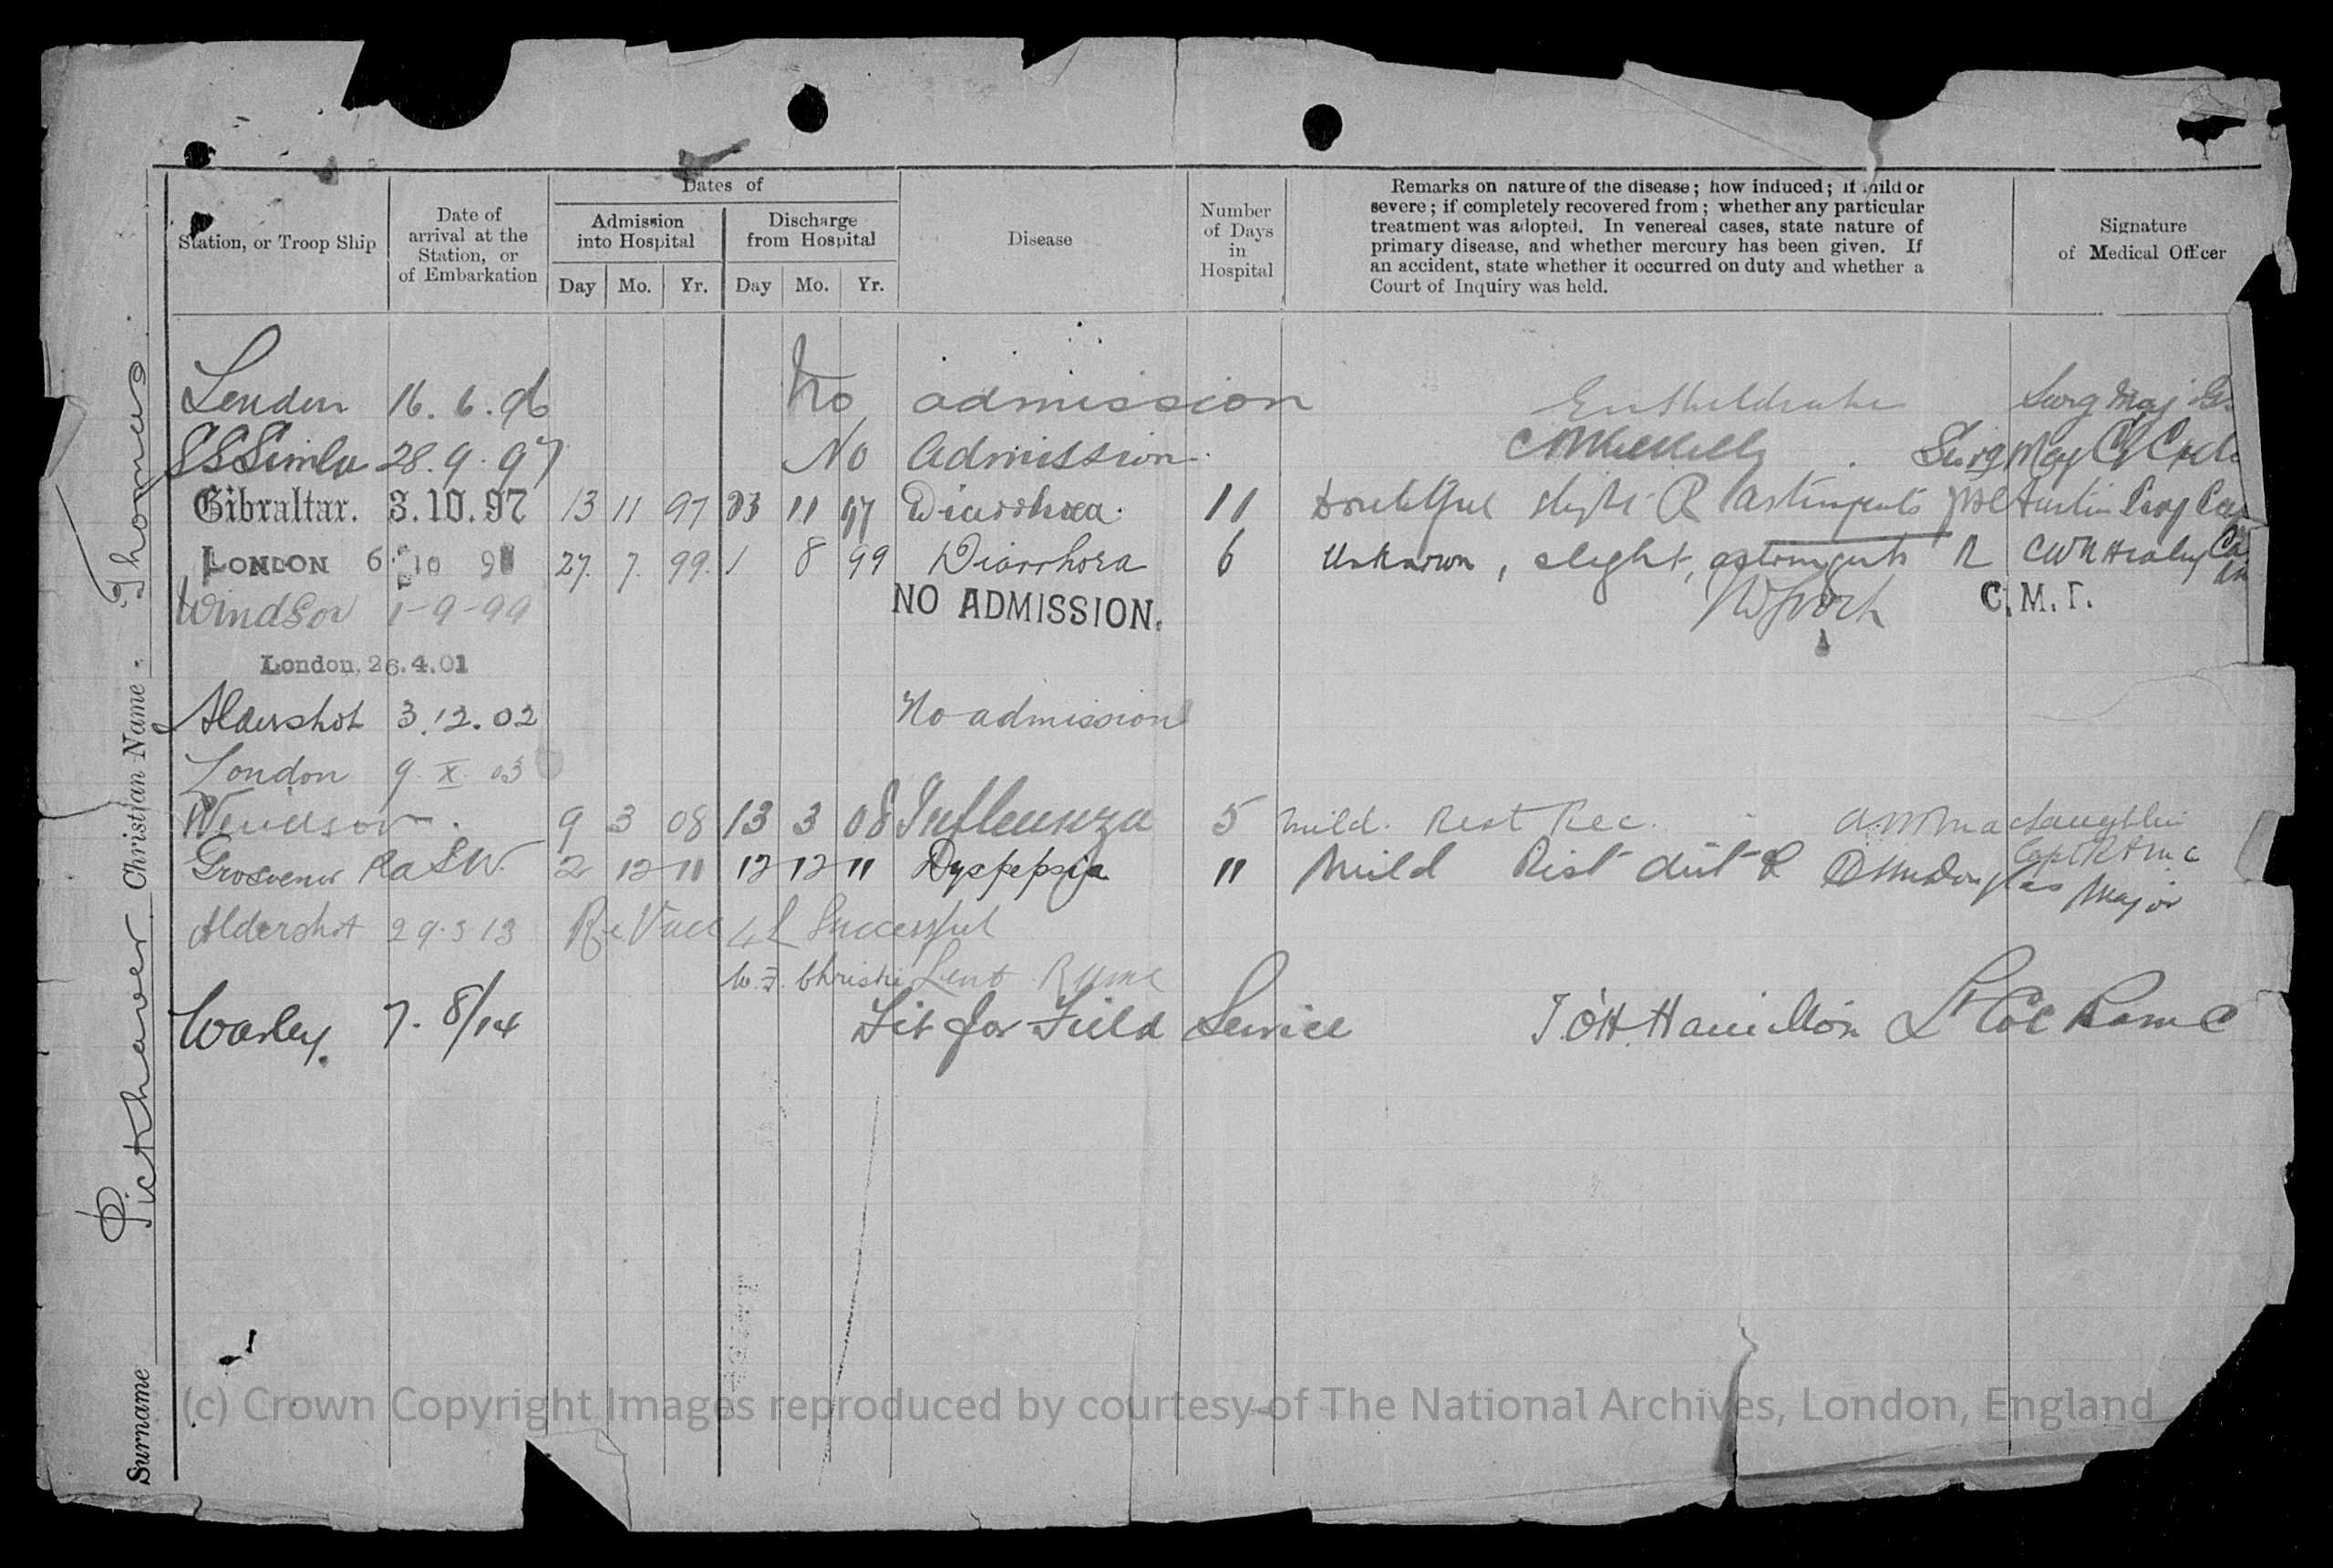 Surname Pickhaver Christian Name Thomas
Dates of
Station, or Troop Ship
Date of arrival at the Station, or of Embarkation
Admission into Hospital
Discharge from Hospital
Day Mo. Yr. Day Mo. Yr.
Disease
Number of Days in Hospital
Remarks on nature of the disease; how induced; if mild or
severe; if completely recovered from; whether any particular
treatment was adopted. In venereal cases, state nature of
primary disease, and whether mercury has been given. If
an accident, state whether it occurred on duty and whether a
Court of Inquiry was held.
Signature of Medical Officer
London 16.6.96 No admission Surg Maj G.
SS Simla 28.9.97 No Admission Surg Maj
Gibraltar. 3.10.97 13 11 97 23 11 97 Diarrhoea. 11 Doubtful slight R Astringents Austin
LONDON 6 10 98 27. 7. 99. 1 8 99 Diarrhoea 6 Unknown, slight, astringents R
Windsor 1-9-99 NO ADMISSION. C.M.T.
London, 26.4.01
Aldershot 3.12.02 No admission
London 9 X 03
Windsor. 9 3 08 13 3 08 Influenza 5 Mild. Rest Rec. Maclaughlin
Capt RAMC
Grosvenor Rd S.W. 2 12 11 12 12 11 Dyspepsia 11 Mild Rest diet R Douglas Major
Aldershot 29.3.13 Re Vacc 4 L Successful
W.F. Christie Lieut RAMC
Warley. 7.8/14 Fit for Field Service J. O'H. Hamilton Lt Col RAMC
(c) Crown Copyright Images reproduced by courtesy of The National Archives, London, England